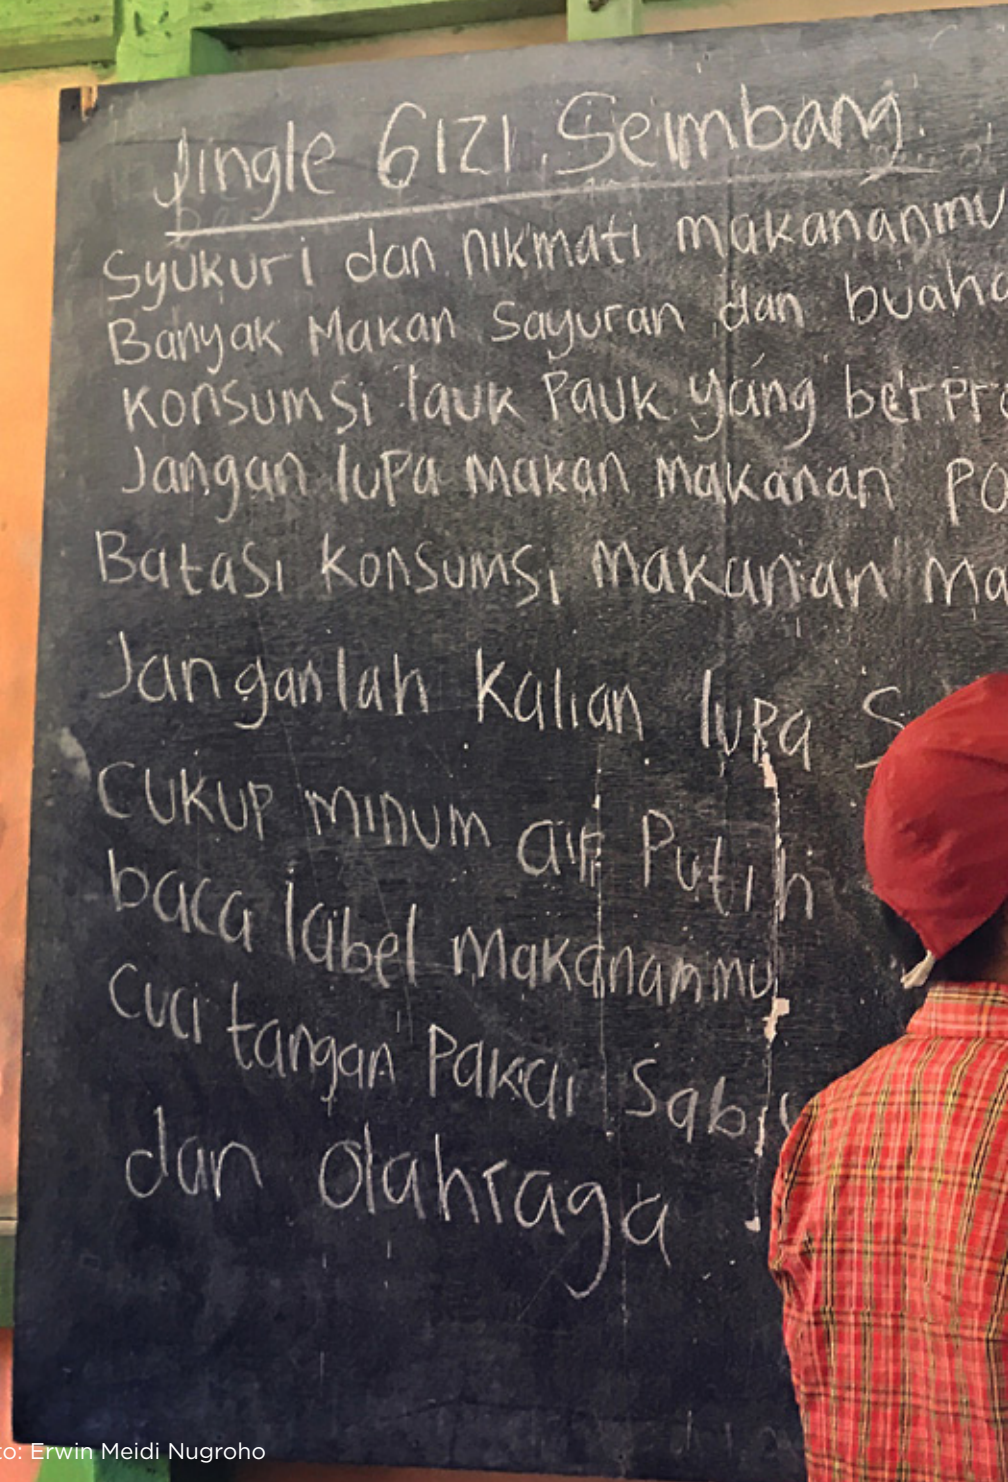 Jingle GIZI Seimbang.
Syukuri dan nikmati makananmu
Banyak Makan Sayuran dan buaha
Konsumsi lauk Pauk yang berPro
Jangan lupa makan makanan Po
Batasi konsumsi makanan Ma
Janganlah kalian lupa S
cukup minum air Putih
baca label makananmu
cuci tangan Pakai Sabu
dan olahraga
to: Erwin Meidi Nugroho